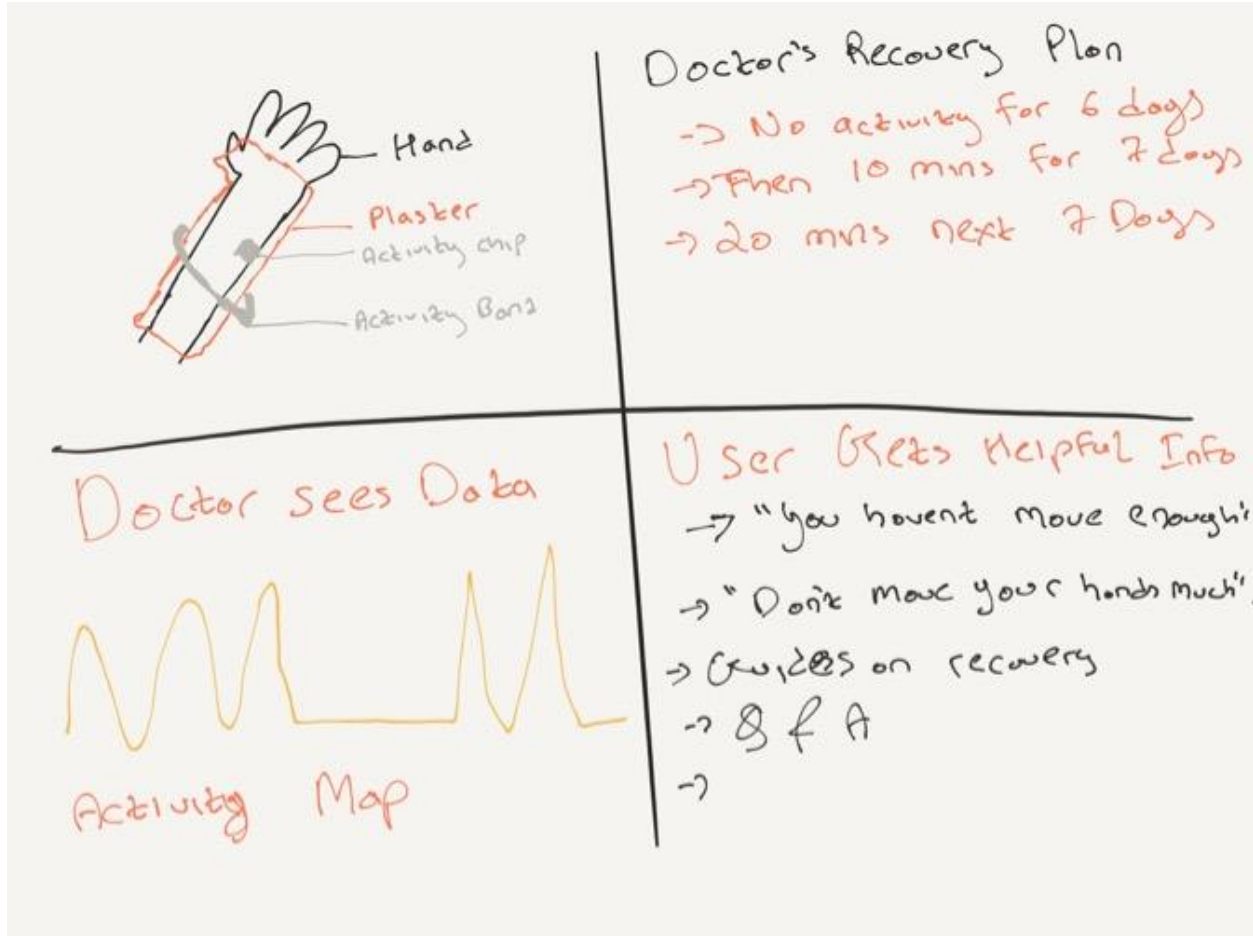 Hand
Plaster
Activity chip
Activity Band
Doctor's Recovery Plan
-> No activity for 6 days
-> Then 10 mins for 7 days
-> 20 mins next 7 Days
Doctor sees Data
Activity Map
User Gets Helpful Info
-> "You havent move enough"
-> "Don't move your hands much"
-> Guides on recovery
-> Q & A
->